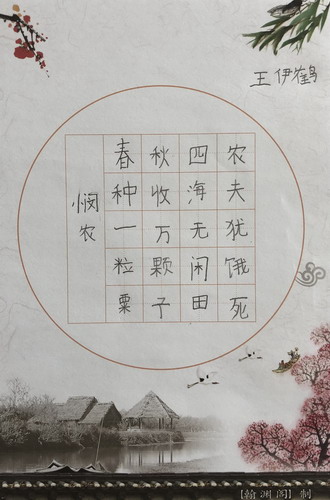 王伊鹤
悯农
春种一粒粟
秋收万颗子
四海无闲田
农夫犹饿死
[翰渊阁] 制